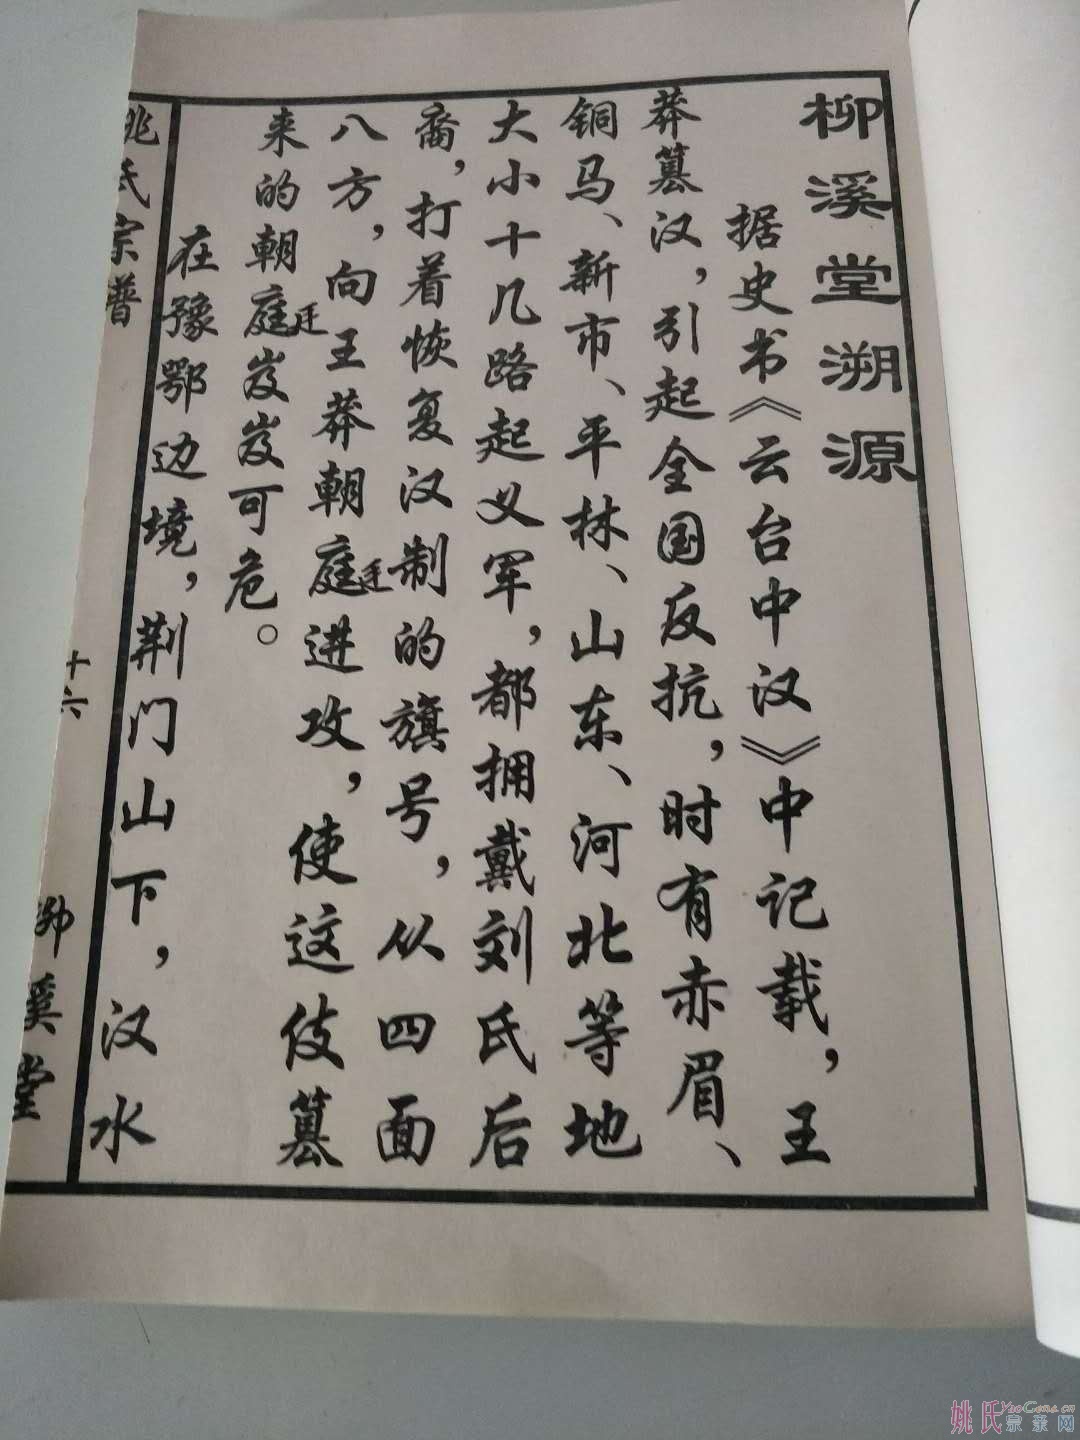 柳溪堂溯源
据史书《云台中汉》中记载，王
莽篡汉，引起全国反抗，时有赤眉、
铜马、新市、平林、山东、河北等地
大小十几路起义军，都拥戴刘氏后
裔，打着恢复汉制的旗号，从四面
八方，向王莽朝庭进攻，使这伎篡
廷
来的朝庭岌岌可危。
廷
在豫鄂边境，荆门山下，汉水
姚氏宗谱
十六
柳溪堂
姚氏宗亲网
YaoGens.cn